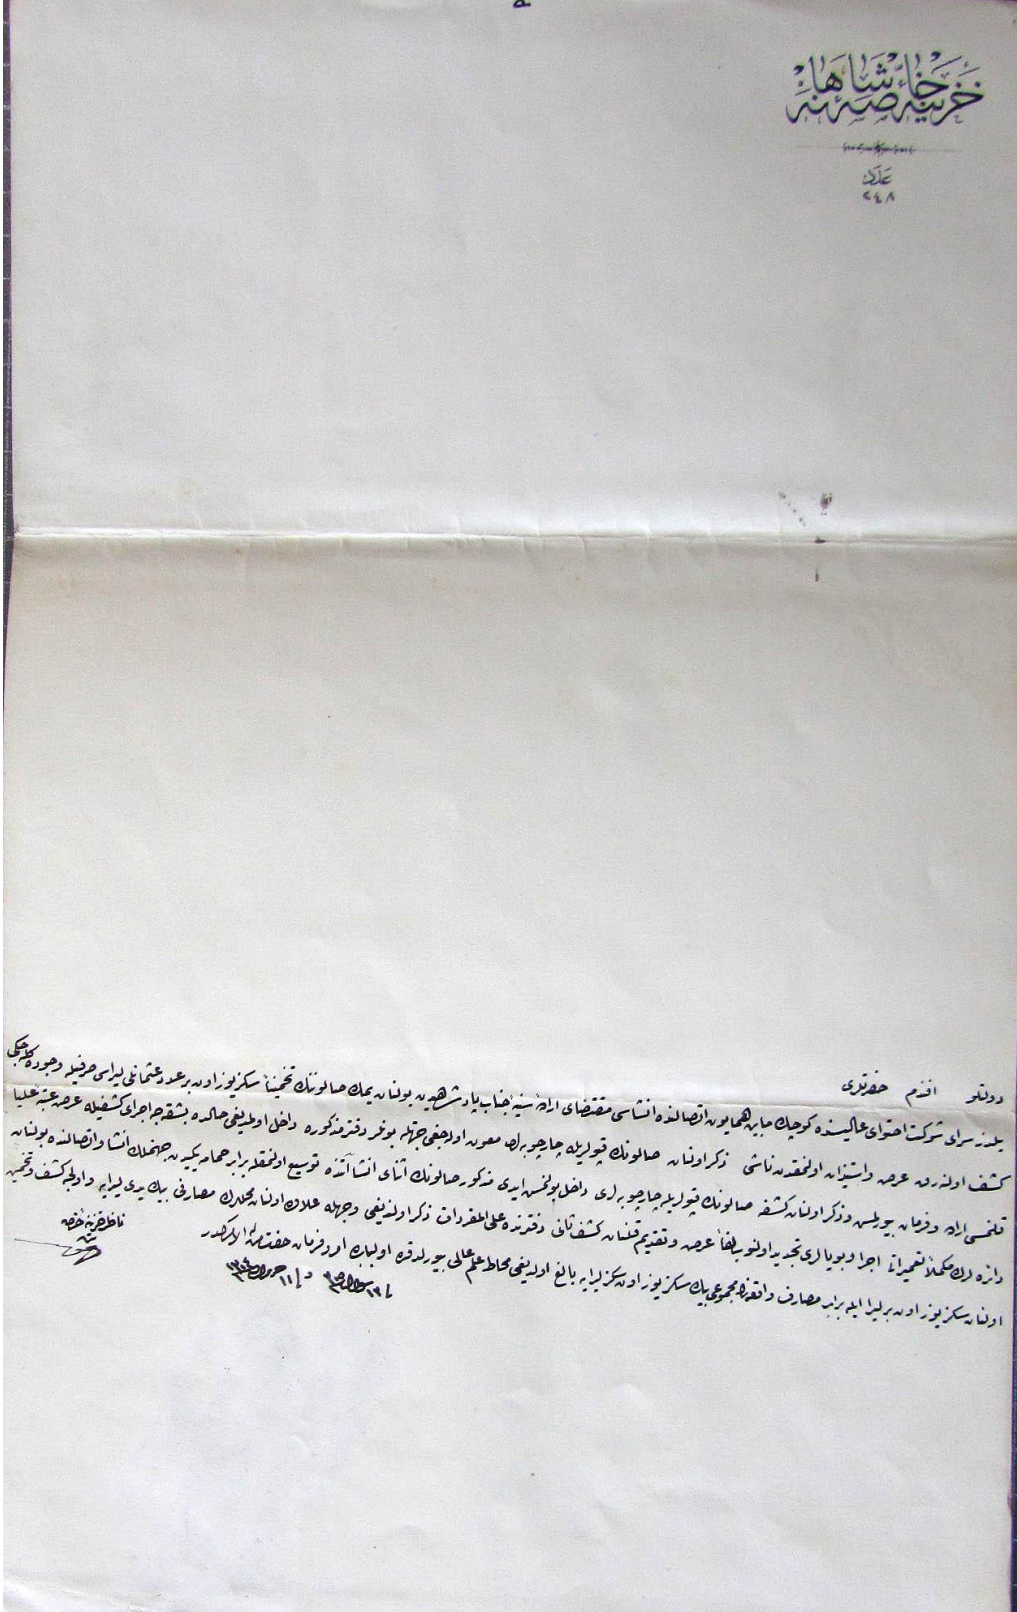 خزینه خاصه شاهانه
عدد
٢٤٨
دولتلو افندم حضرتلری
یلدز سرای شوکت احتوای عالیسنده کوچك مابین همایون اتصالنده انشاسی مقتضای اراده سنیه جناب پادشاهیدن بولنان یمك صالوننك تخمیناً سکز یوز اون بر عدد عثمانلی لیراسی صرفیله وجوده کله جکی
کشف اولنه رق عرض و استیذان اولنمقدن ناشی ذکر اولنان صالونك قپولریله چارچوبه لری معمول اوله جغی جهتله بونلر دفتر مذکوره داخل اولمدیغی حالده بشقه جه اجرای کشفیله عرض عتبه علیا
قلنمسی اراده و فرمان بیورلمش و ذکر اولنان کشفه صالونك قپولریله چارچوبه لری داخل بولنمش ایدی مذکور صالونك اثنای انشاآتنده توسیع اولنمقله برابر حمامه یکیدن جهنملك انشا و اتصالنده بولنان
دائره لرك مکملاً تعمیراتی اجرا و بویالری تجدید اولنوب لفاً عرض و تقدیم قلنان کشف ثانی دفترنده علی المفردات ذکر اولندیغی وجهله علاوه اولنان محللرك مصارفی بیك یدی لیرایه و اولجه کشف و تخمین
اولنان سکز یوز اون بر لیرا ایله برابر مصارف واقعه نك مجموعی بیك سکز یوز اون سکز لیرایه بالغ اولدیغی محاط علم عالی بیورلدقده اولبابده امر و فرمان حضرت من له الامرکدر
فی ١٣ شوال سنه و فی ١١ سنه
ناظر خزینه خاصه